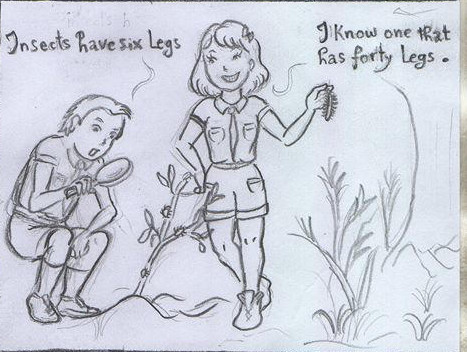 Insects have six Legs
I Know one that
has forty Legs.